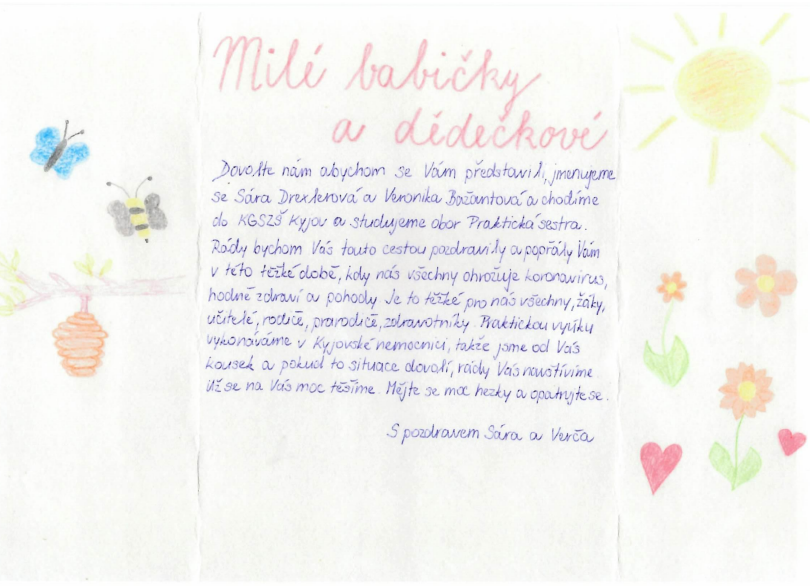 Milé babičky
a dědečkové
Dovolte nám abychom se Vám představili, jmenujeme
se Sára Drexlerová a Veronika Bažantová a chodíme
do KGSZŠ Kyjov a studujeme obor Praktická sestra.
Rády bychom Vás touto cestou pozdravily a popřály Vám
v této těžké době, kdy nás všechny ohrožuje koronavirus,
hodně zdraví a pohody. Je to těžké pro nás všechny, žáky,
učitelé, rodiče, prarodiče, zdravotníky. Praktickou výuku
vykonáváme v Kyjovské nemocnici, takže jsme od Vás
kousek a pokud to situace dovolí, rády Vás navštívíme.
Už se na Vás moc těšíme. Mějte se moc hezky a opatrujte se.
S pozdravem Sára a Verča